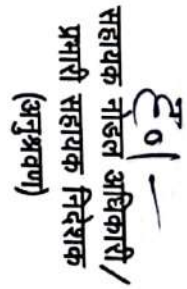 ह०/-
सहायक नोडल अधिकारी/
प्रभारी सहायक निदेशक
(अनुश्रवण)